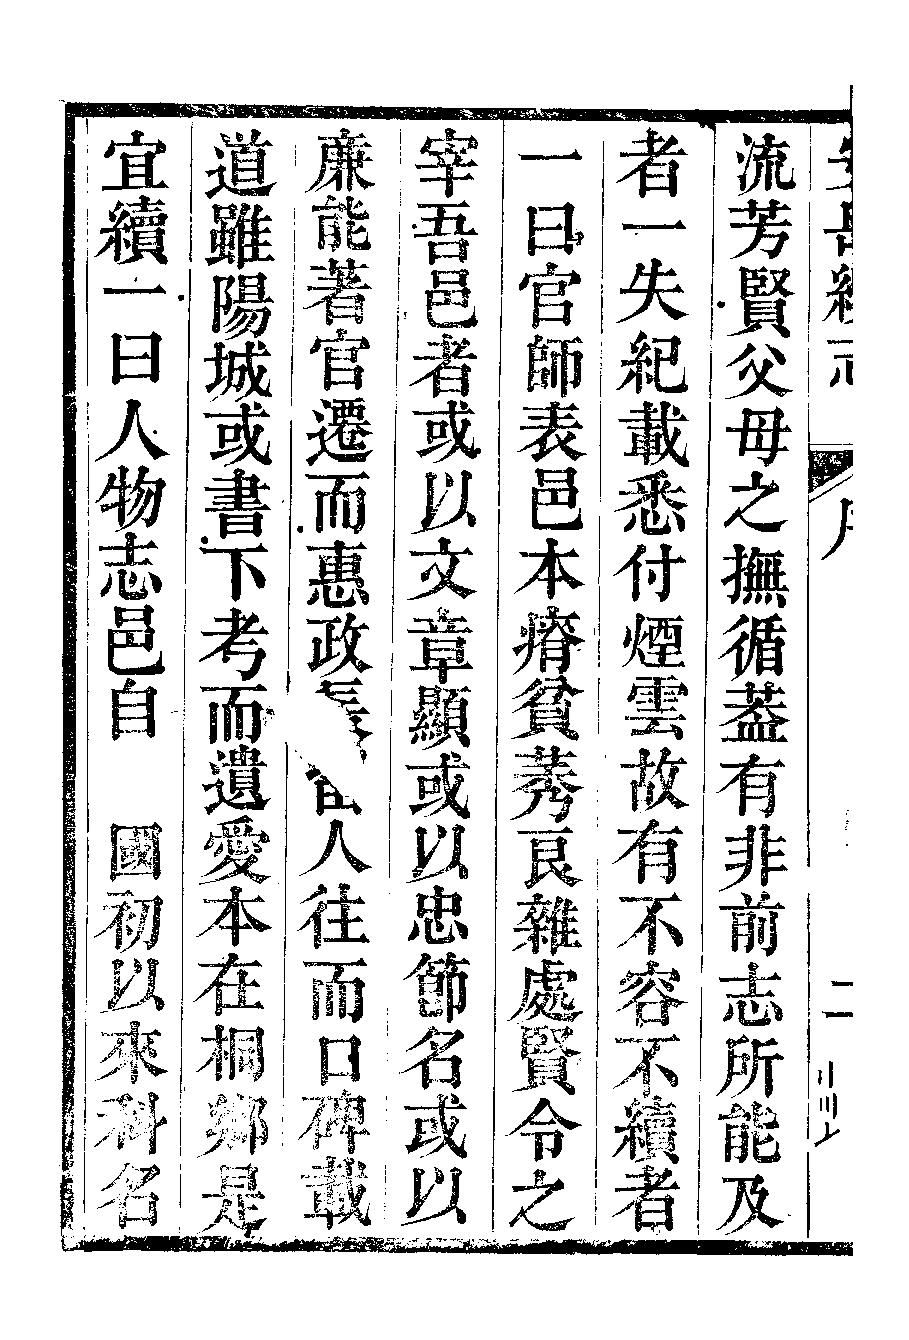 二
流芳賢父母之撫循葢有非前志所能及
者一失紀載悉付煙雲故有不容不續者
一曰官師表邑本瘠貧莠良雜處賢令之
宰吾邑者或以文章顯或以忠節名或以
廉能著官遷而惠政長留人往而口碑載
道雖陽城或書下考而遺愛本在桐鄉是
宜續一曰人物志邑自　國初以來科名